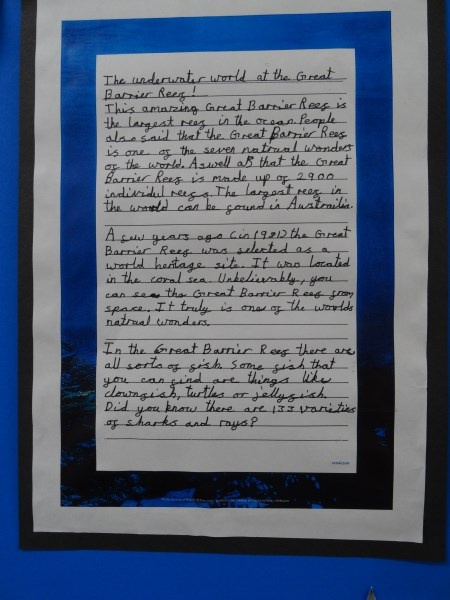 The underwater world at the Great
Barrier Reef!
This amazing Great Barrier Reef is
the largest reef in the ocean. People
also said that the Great Barrier Reef
is one of the seven natrual wonders
of the world. Aswell as that the Great
Barrier Reef is made up of 2900
individul reefs. The largest reef in
the world can be found in Austrailia.
A few years ago (in 1981) the Great
Barrier Reef was selected as a
world heritage site. It was located
in the coral sea. Unbelievably, you
can see the Great Barrier Reef from
space. It truly is one of the worlds
natrual wonders.
In the Great Barrier Reef there are
all sorts of fish. Some fish that
you can find are things like
clownfish, turtles or jellyfish.
Did you know there are 133 varieties
of sharks and rays?